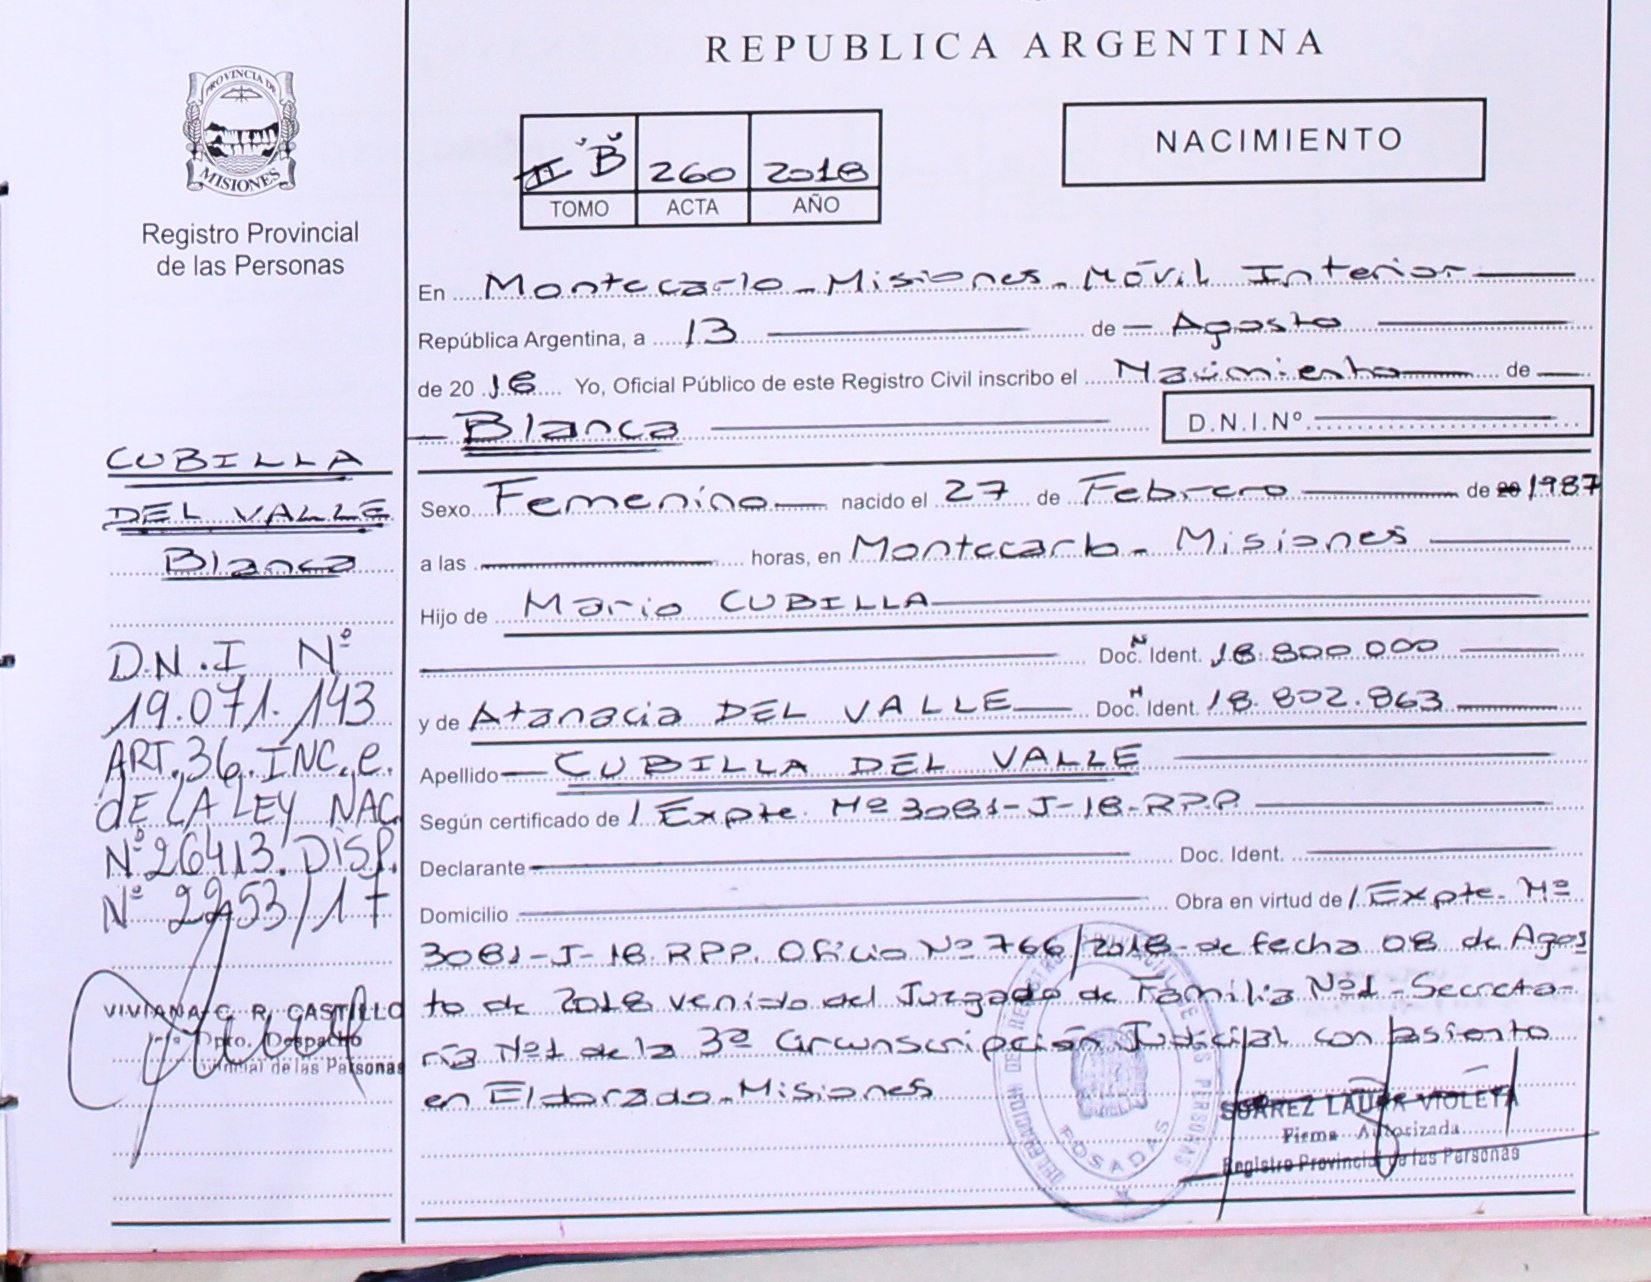 REPUBLICA ARGENTINA
PROVINCIA DE
MISIONES
Registro Provincial
de las Personas
II "B" 260 2018
TOMO ACTA AÑO
NACIMIENTO
En Montecarlo - Misiones - Móvil Interior
República Argentina, a 13 de Agosto
de 20 18 Yo, Oficial Público de este Registro Civil inscribo el Nacimiento de
Blanca D.N.I.Nº
Sexo Femenino nacido el 27 de Febrero de 20 1987
a las horas, en Montecarlo - Misiones
Hijo de Mario CUBILLA
Doc. Ident. 18.800.000
y de Atanacia DEL VALLE Doc. Ident. 18.802.863
Apellido CUBILLA DEL VALLE
Según certificado de / Expte. Nº 3081-J-18-RPP
Declarante Doc. Ident.
Domicilio Obra en virtud de / Expte. Nº
3081-J-18. RPP. Oficio Nº 766/2018 - de fecha 08 de Agos
to de 2018 venido del Juzgado de Familia Nº1 - Secreta-
ría Nº1 de la 3ª Circunscripción Judicial con asiento
en Eldorado - Misiones
CUBILLA
DEL VALLE
Blanca
D.N.I Nº
19.071.143
ART.36.INC.e.
dE LA LEY NAC.
Nº26413.DISP.
Nº 2253/17
VIVIANA C. R. CASTILLO
Dpto. Despacho
de las Personas
POSADAS
SUAREZ LAURA VIOLETA
Firma Autorizada
Registro Provincial de las Personas